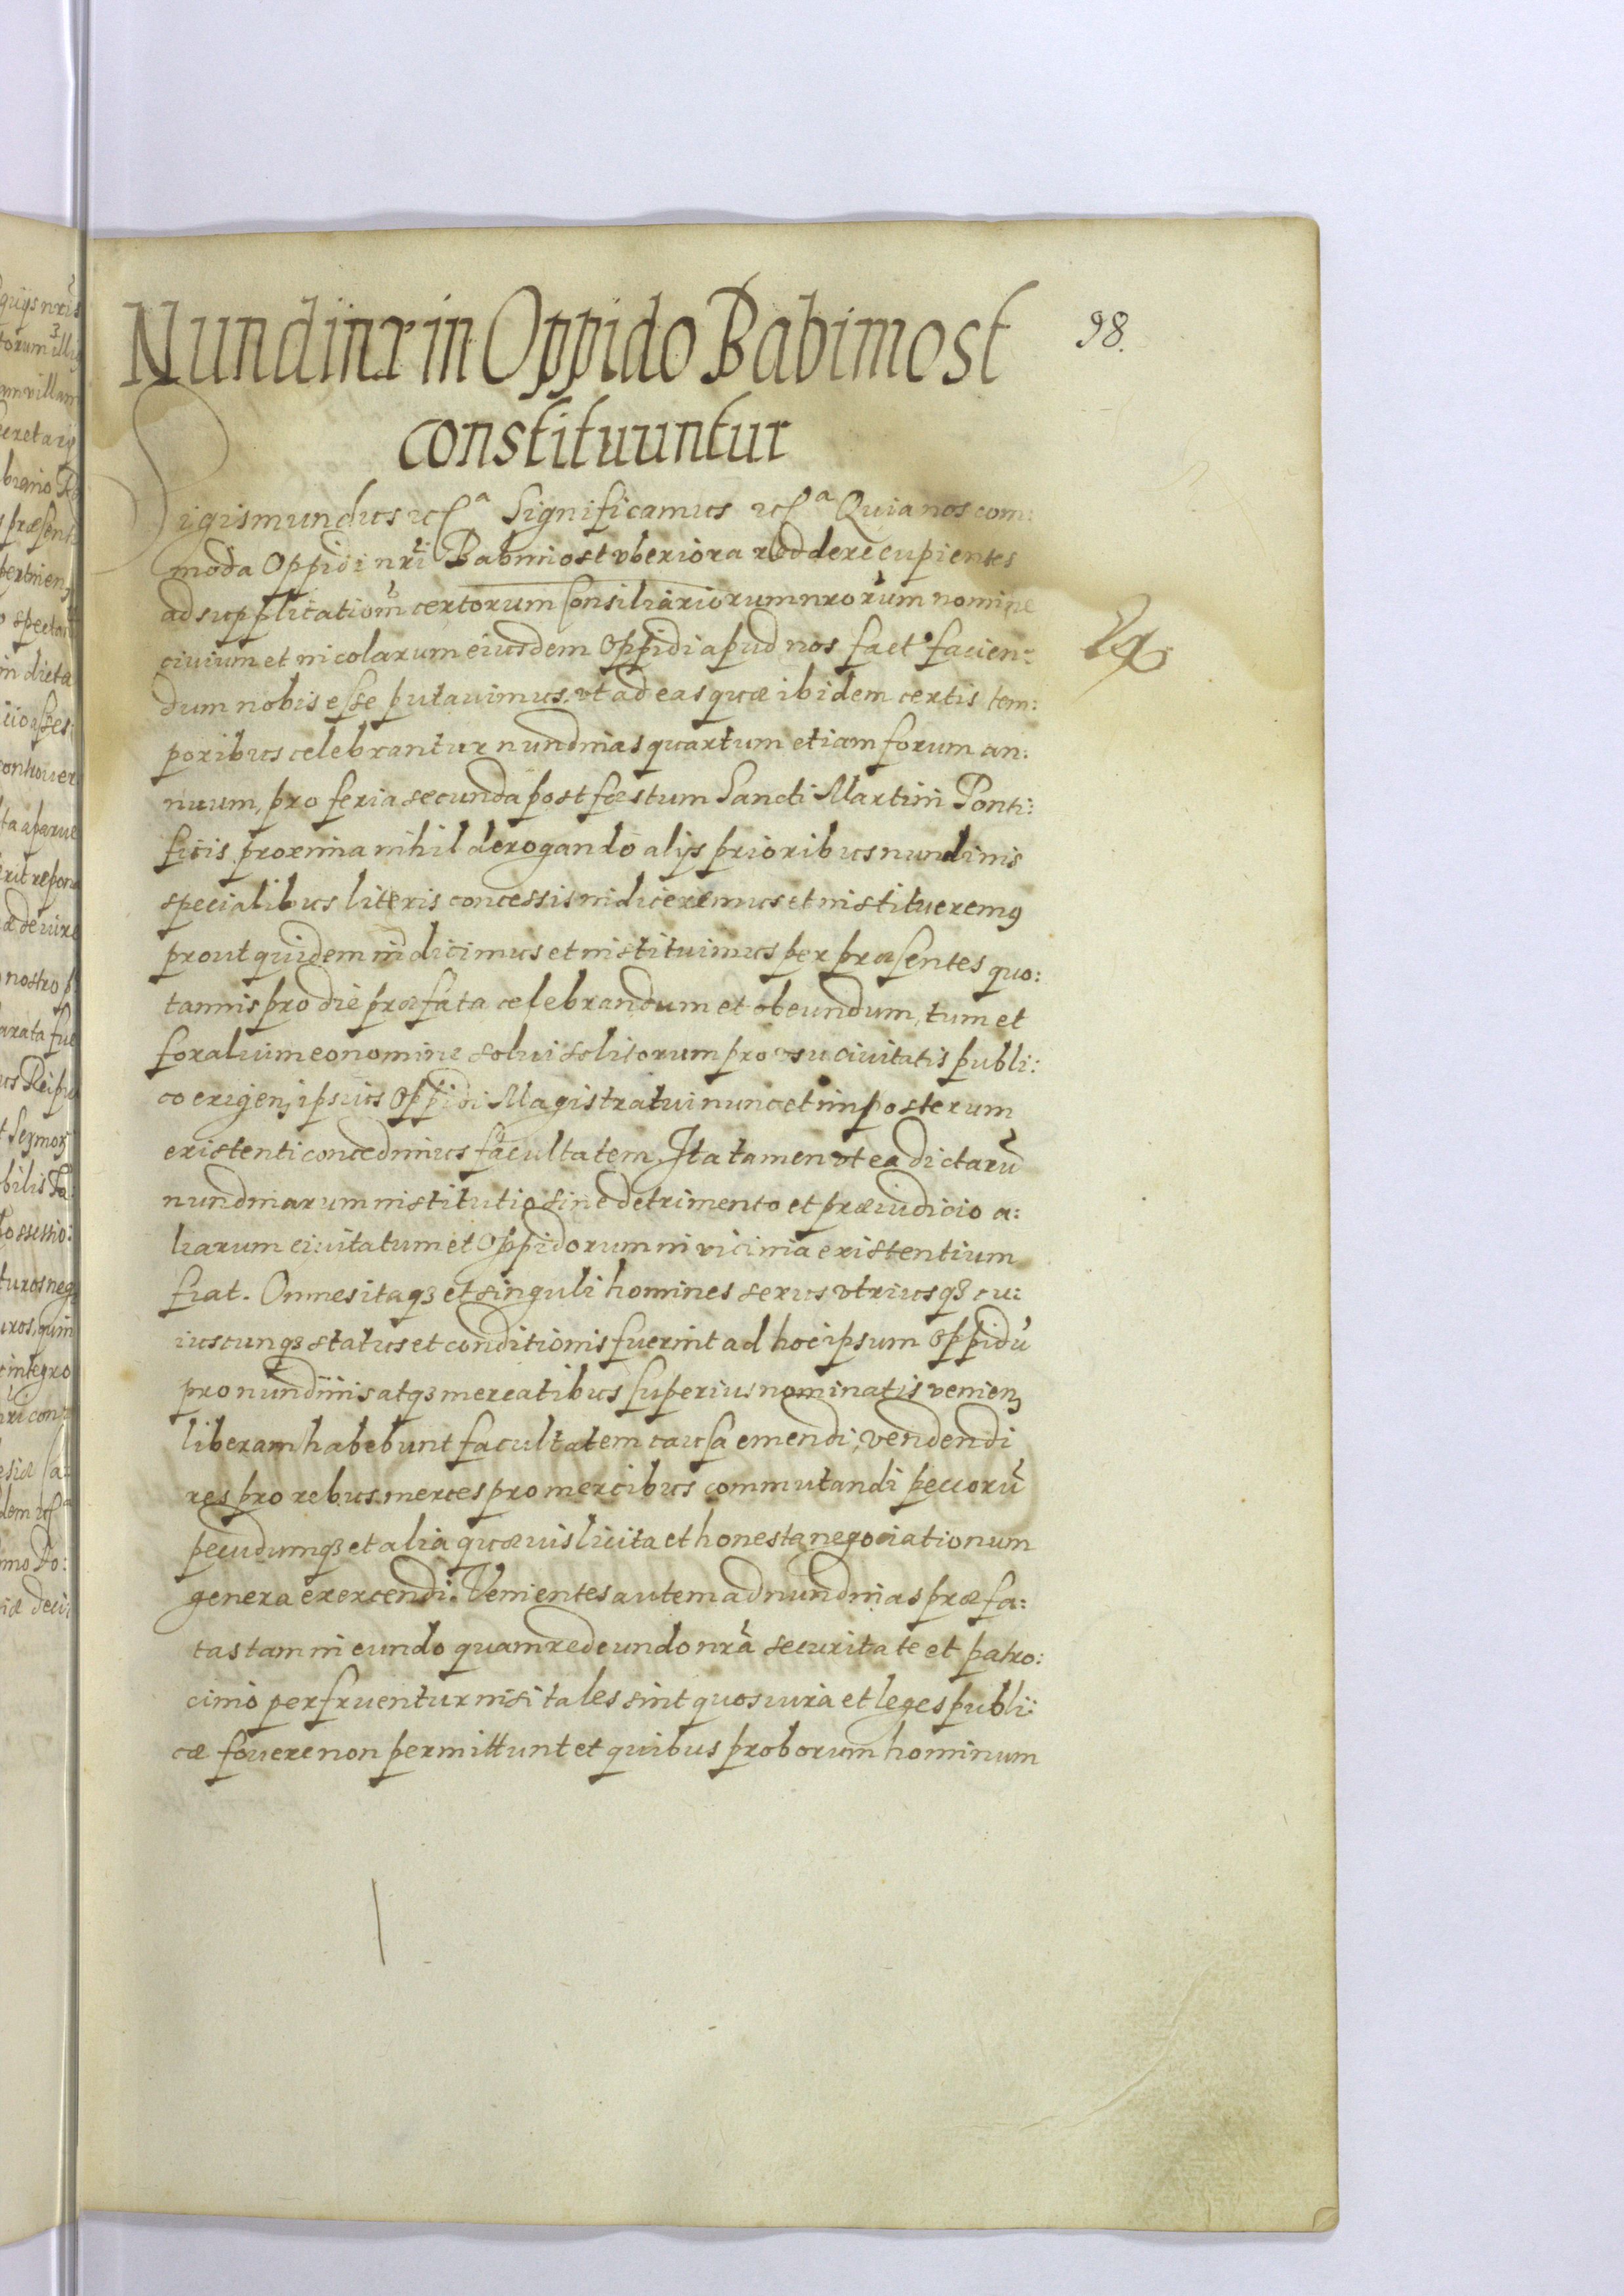 98.
Nundinæ in Oppido Babimost
constituuntur
Sigismundus etc a Significamus etc a Quia nos com:
moda Oppidi nri Babimost vberiora reddere cupientes
ad supplicationē certorum Consiliariorum nrorum nomine
ciuium et incolarum eiusdem Oppidi apud nos fact facien:
dum nobis esse putauimus, vt ad eas quæ ibidem certis tem:
poribus celebrantur nundinas quartum etiam forum an:
nuum, pro feria secunda post festum Sancti Martini Ponti:
ficis proxima nihil derogando alijs prioribus nundinis
specialibus literis concessis indiceremus et institueremus
prout quidem indicimus et instituimus per præsentes quo:
tannis pro die præfata celebrandum et obeundum, tum et
foralium eo nomine solui solitorum pro vsu ciuitatis publi:
co erigenȝ ipsius Oppidi Magistratui nunc et in posterum
existenti concedimus facultatem. Ita tamen vt ea dictarū
nundinarum institutio sine detrimento et præiudicio a:
liarum ciuitatum et Oppidorum in vicinia existentium
fiat. Omnes itaqȝ et singuli homines sexus vtriusqȝ cu:
iuscunqȝ status et conditionis fuerint ad hoc ipsum Oppidū
pro nundinis atqȝ mercatibus superius nominatis venienȝ
liberam habebunt facultatem causa emendi, vendendi
res pro rebus merces pro mercibus commutandi pecorū
pecudumqȝ et alia quæuis licita et honesta negociationum
genera exercendi. Venientes autem ad nundinas præfa:
tas tam in eundo quam redeundo nrā securitate et patro:
cinio perfruentur nisi tales sint quos iura et leges publi:
cæ fouere non permittunt et quibus proborum hominum